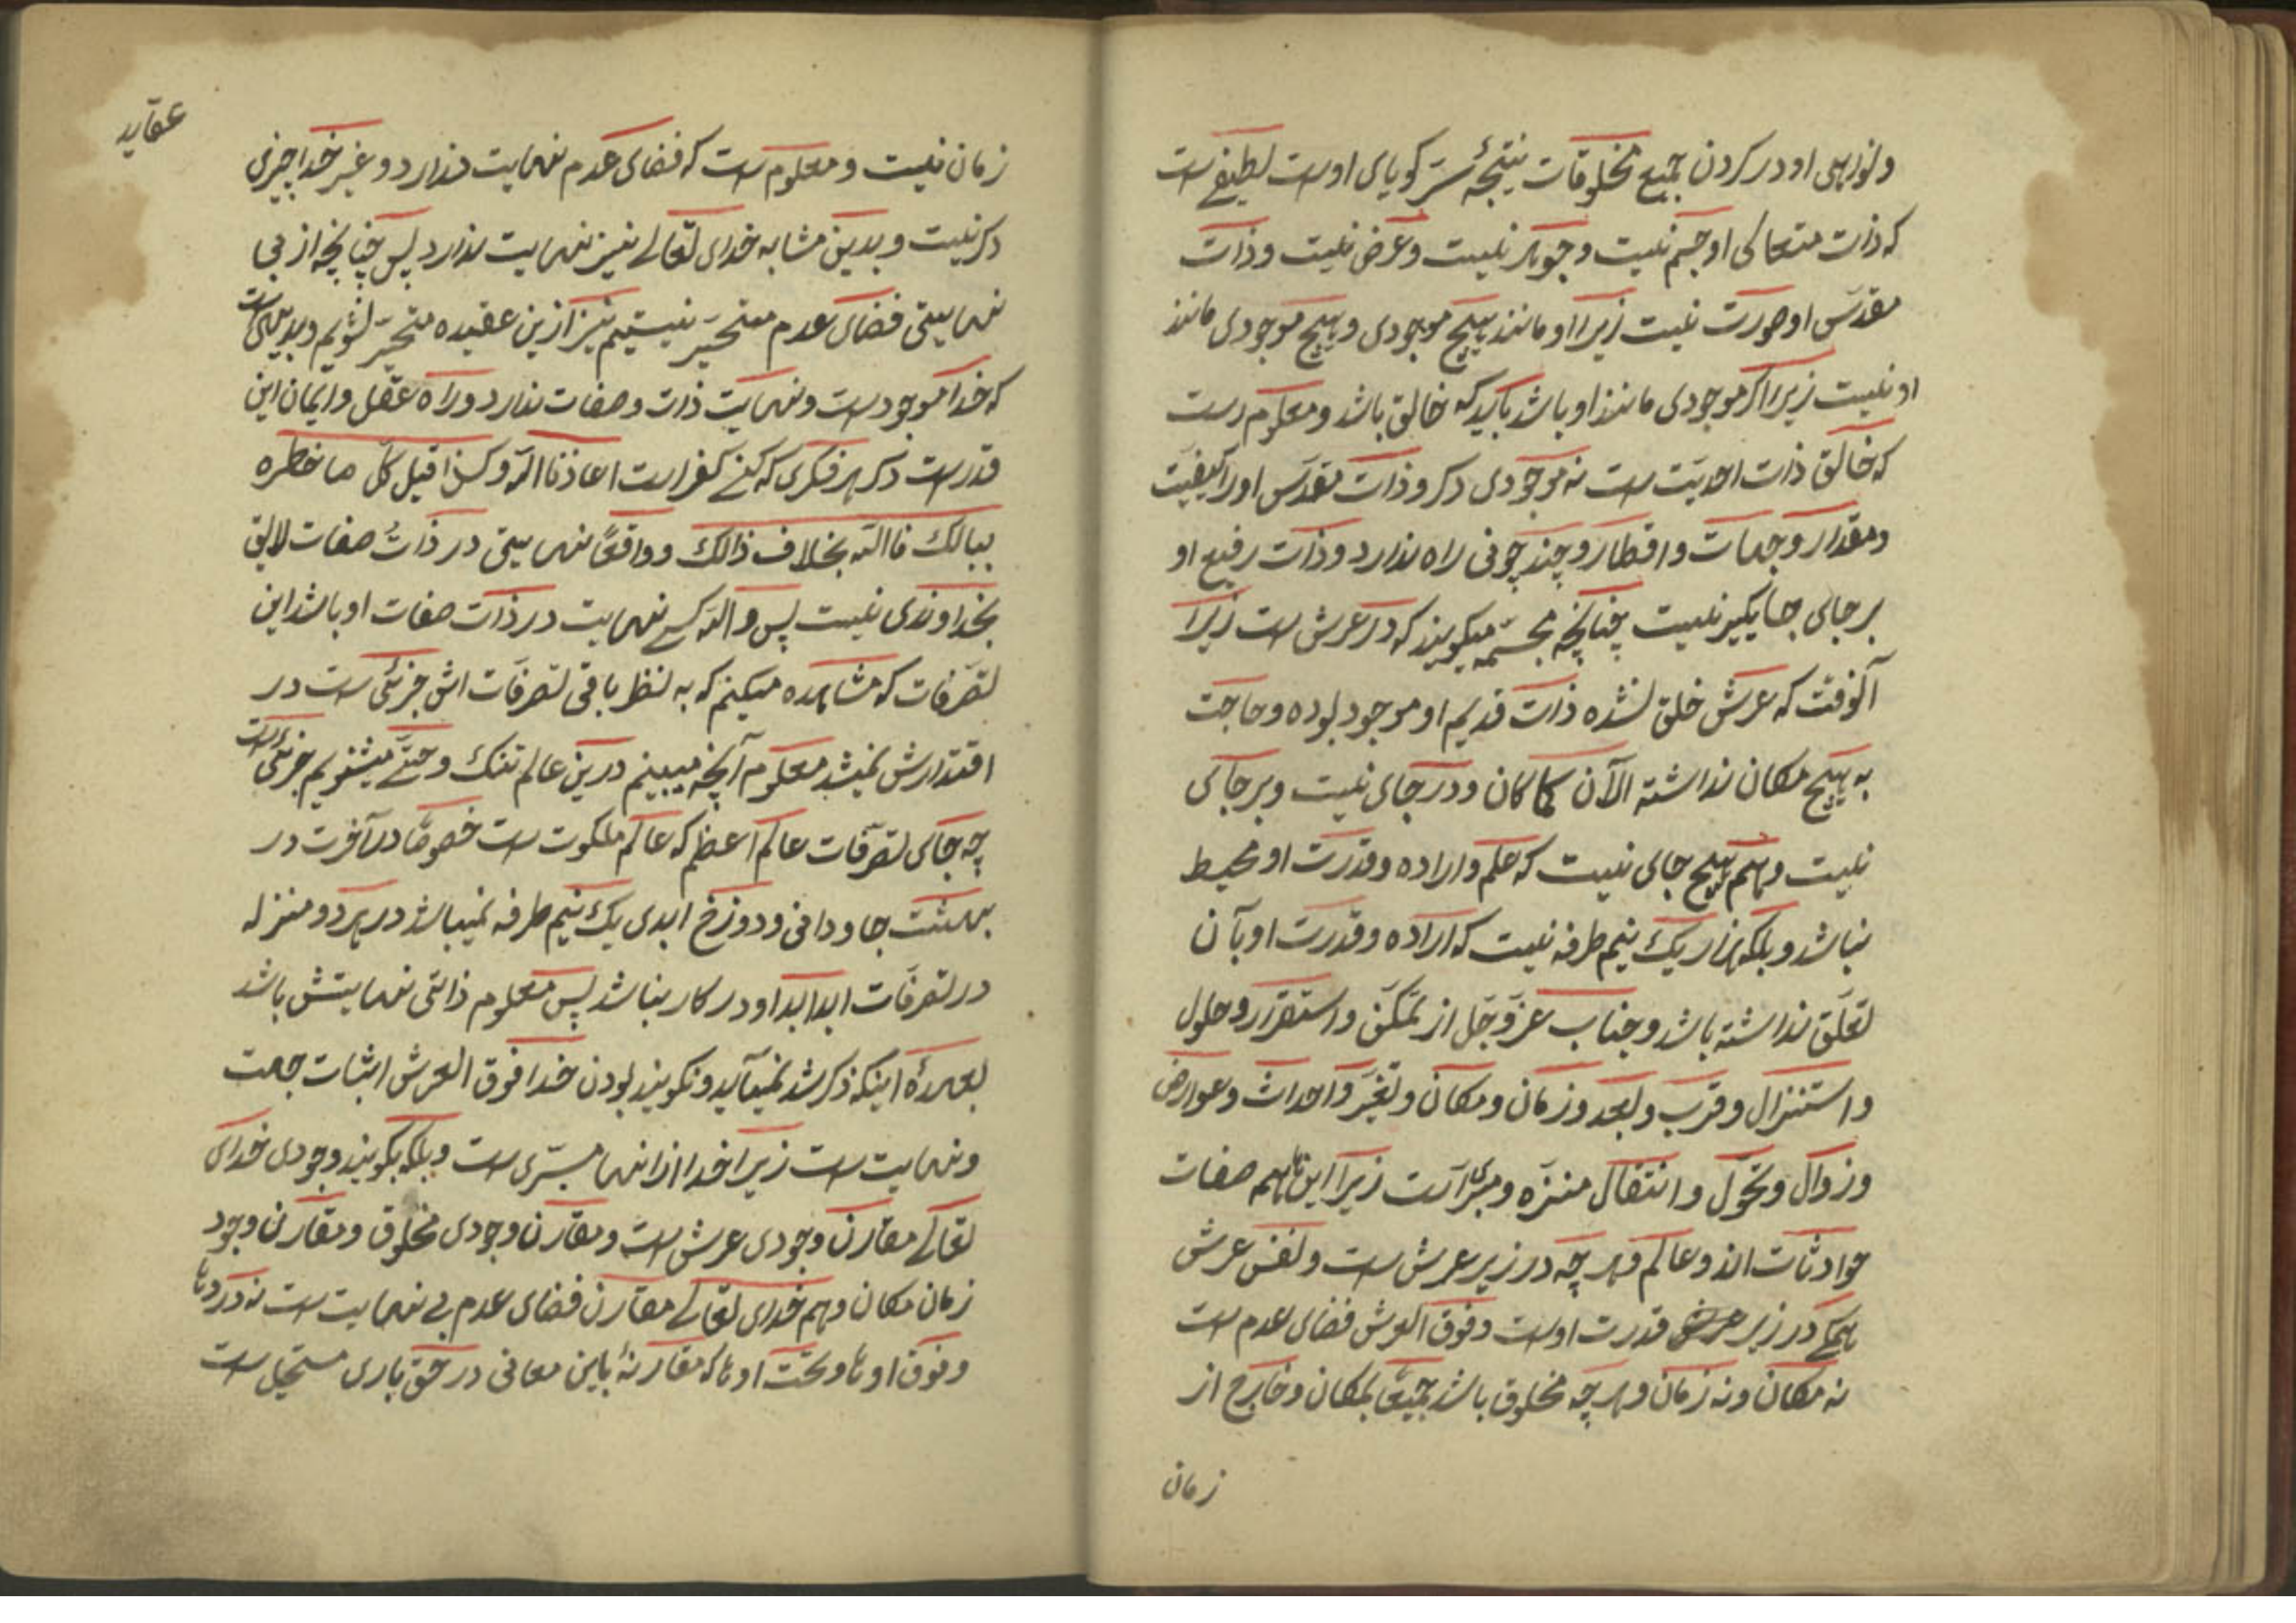 که ذات متعالی او جسم نیست و جوهر نیست و عرض نیست و ذات
مقدّس او صورت نیست زیرا او مانند هیچ موجودی و هیچ موجودی مانند
او نیست زیرا اکر موجودی مانند او باشد باید که خالق باشد و معلوم است
که خالق ذات احدیّت است نه موجودی دکر و ذات مقدّس او را کیفیّت
و مقدار و جهات و اقطار و چند چونی راه ندارد و ذات رفیع او
بر جای جایکیر نیست چنانچه مجسّمه میکویند که در عرش است زیرا
آنوقت که عرش خلق نشده ذات قدیم او موجود بوده و حاجت
به هیچ مکان نداشته الآن کما کان و در جای نیست و بر جای
نیست و هم هیچ جای نیست که علم و اراده و قدرت او محیط
نباشد و بلکه هزار یک نیم طرفه نیست که اراده و قدرت او بآن
تعلّق نداشته باشد و جناب عزّ و جلّ از تمکّن و استقرار و حلول
و استنزال و قرب و بعد و زمان و مکان و تغیّر و احداث و عوارض
و زوال و تحوّل و انتقال منزّه و مبرّا است زیرا اینها همه صفات
حوادثات اند و عالم و هر چه در زیر عرش است و نفس عرش
همکی در زیر قدرت اوست و فوق العرش فضای عدم است
نه مکان و نه زمان و هر چه مخلوق باشد جمیعًا بمکان و خارج از
زمان
عقاید
زمان نیست و معلوم است که فضای عدم نهایت ندارد و غیر خدا چیزی
دکر نیست و بدین مشابه خدای تعالی نیز نهایت ندارد پس چنانچه از بی
نهایتی فضای عدم متحیّر نیستیم نیز ازین عقیده متحیّر نشویم و بدیهی است
که خدا موجود است و نهایت ذات و صفات ندارد و راه عقل و ایمان این
قدر است دکر هر فکری که کنی کفر است اعاذنا الله و کذا قیل کلّ ما خطره
ببالک فالله بخلاف ذالک و واقعًا نهایتی در ذات صفات لایق
بخداوندی نیست پس و الّه کسی نهایت در ذات صفات او باشد این
تصرّفات که مشاهده میکنم که به نظر باقی تصرّفات اش جزئی است در
اقتدارش نمیشد معلوم آنچه میبینم درین عالم تنک و حتّی میشنویم جزئی است
چه جای تصرّفات عالم اعظم که عالم ملکوت است خصوصًا در آخرت در
بهشت جاودانی و دوزخ ابدی یک نیم طرفه نمیباشد در هر دو منزله
در تصرّفات ابدا ابدا و در کار نباشد پس معلوم ذاتی نهایتش باشد
بعهدهٔ اینکه ذکر شد نمیآید و نکویند بودن خدا فوق العرش اثبات جهت
و نهایت است زیرا خدا از اینها مبرّی است و بلکه بکویند وجودی خدای
تعالی مقارن وجودی عرش است و مقارن وجودی مخلوق و مقارن وجود
زمان مکان و هم خدای تعالی مقارن فضای عدم بی نهایت است نه در
و فوق اوها و تحت اوها که مقارنهٔ باین معانی در حق باری مستحیل است